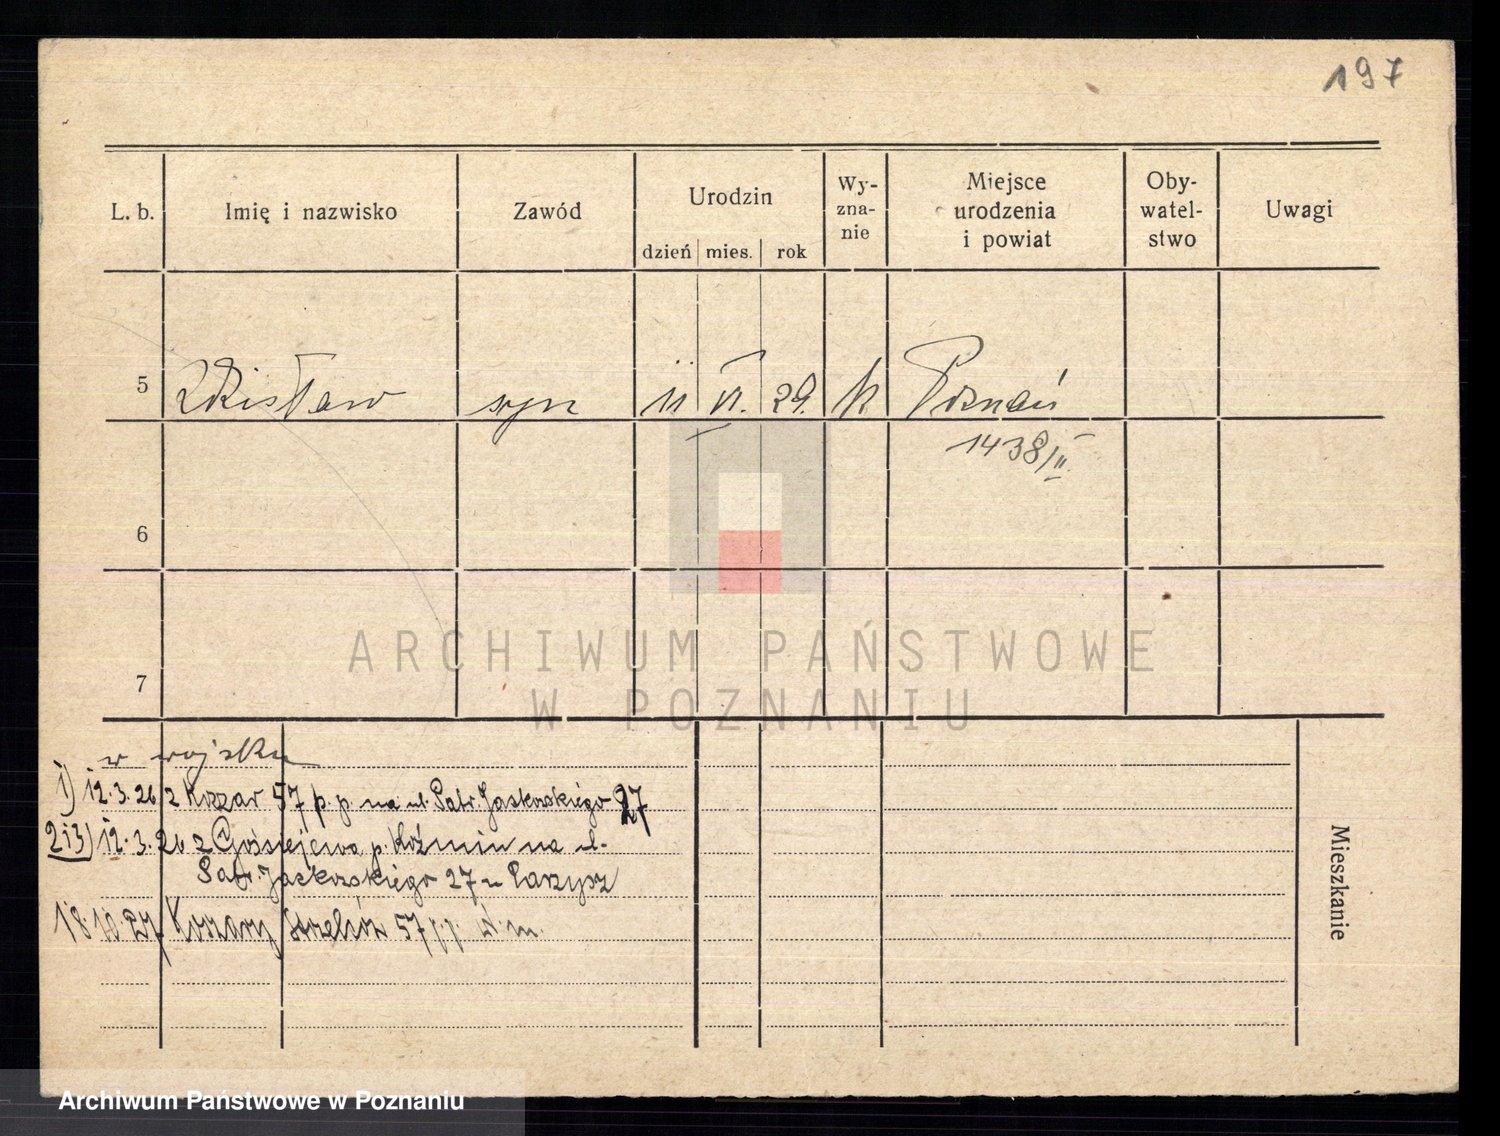 197
L. b.
Imię i nazwisko
Zawód
Urodzin
dzień
mies.
rok
Wy-
zna-
nie
Miejsce
urodzenia
i powiat
Oby-
watel-
stwo
Uwagi
5
Zdzisław
syn
11
VI.
29.
k
Poznań
1438/II.
6
7
ARCHIWUM PAŃSTWOWE
W POZNANIU
w wojsku
1) 12.3.26 z Koszar 57 p. p. na ul. Patr. Jackowskiego 27
2i3) 12.3.26 z p. Koźmin na ul.
Patr. Jackowskiego 27 u
18.10.27 Koszary 57 p.p. w m.
Mieszkanie
Archiwum Państwowe w Poznaniu